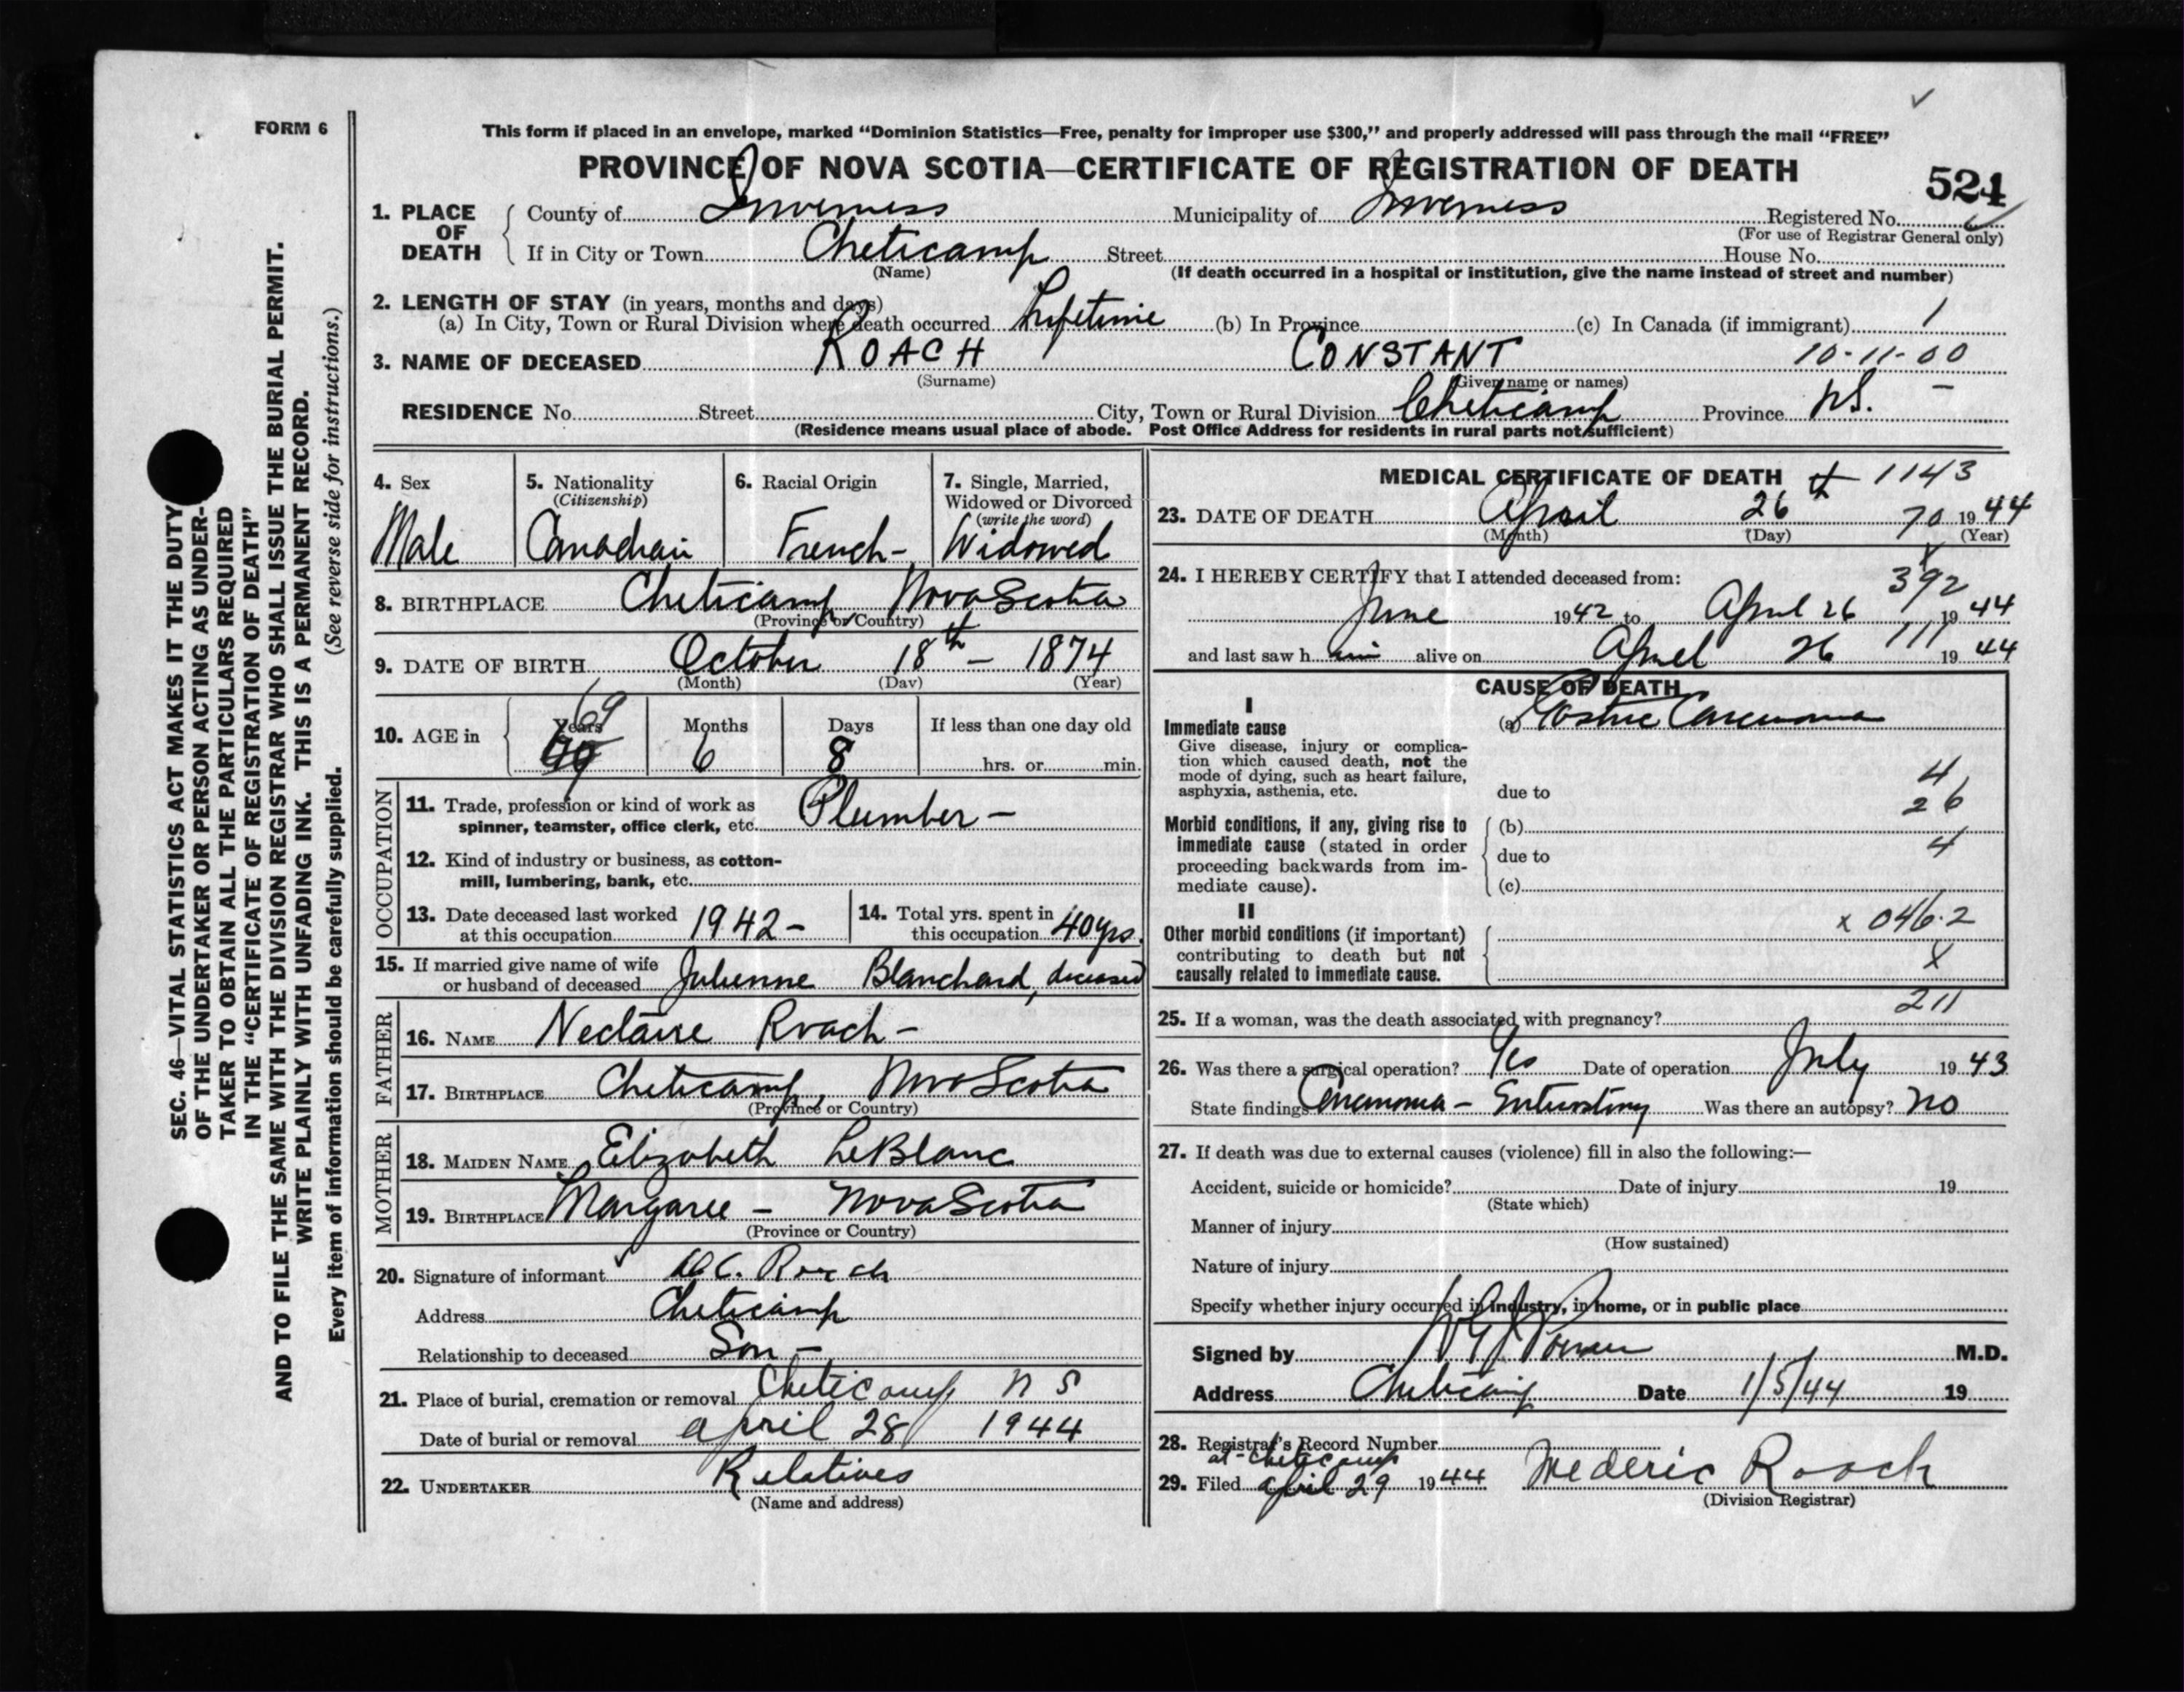 FORM 6
This form if placed in an envelope, marked “Dominion Statistics—Free, penalty for improper use $300,” and properly addressed will pass through the mail “FREE”
PROVINCE OF NOVA SCOTIA—CERTIFICATE OF REGISTRATION OF DEATH
524
1. PLACE OF DEATH
County of Inverness Municipality of Inverness Registered No.
(For use of Registrar General only)
If in City or Town Cheticamp Street House No.
(Name) (If death occurred in a hospital or institution, give the name instead of street and number)
2. LENGTH OF STAY (in years, months and days)
(a) In City, Town or Rural Division where death occurred Lifetime (b) In Province (c) In Canada (if immigrant) 1
3. NAME OF DECEASED ROACH CONSTANT 10-11-00
(Surname) (Given name or names)
RESIDENCE No. Street City, Town or Rural Division Cheticamp Province N.S. —
(Residence means usual place of abode. Post Office Address for residents in rural parts not sufficient)
4. Sex
Male
5. Nationality
(Citizenship)
Canadian
6. Racial Origin
French-
7. Single, Married,
Widowed or Divorced
(write the word)
Widowed
8. BIRTHPLACE Cheticamp Nova Scotia
(Province or Country)
9. DATE OF BIRTH October 18th - 1874
(Month) (Day) (Year)
10. AGE in
Years 69
Months 6
Days 8
If less than one day old
hrs. or min.
OCCUPATION
11. Trade, profession or kind of work as
spinner, teamster, office clerk, etc. Plumber —
12. Kind of industry or business, as cotton-
mill, lumbering, bank, etc.
13. Date deceased last worked
at this occupation 1942 -
14. Total yrs. spent in
this occupation 40 yrs.
15. If married give name of wife
or husband of deceased Julienne Blanchard, deceased
FATHER
16. NAME Nectaire Roach -
17. BIRTHPLACE Cheticamp, Nova Scotia
(Province or Country)
MOTHER
18. MAIDEN NAME Elizabeth LeBlanc
19. BIRTHPLACE Margaree - Nova Scotia
(Province or Country)
20. Signature of informant C. Roach
Address Cheticamp
Relationship to deceased Son -
21. Place of burial, cremation or removal Cheticamp N S
Date of burial or removal april 28 1944
22. UNDERTAKER Relatives
(Name and address)
MEDICAL CERTIFICATE OF DEATH 1143
23. DATE OF DEATH April 26th 70 1944
(Month) (Day) (Year)
24. I HEREBY CERTIFY that I attended deceased from:
392
June 1942 to April 26 1944
and last saw h im alive on April 26 111 1944
CAUSE OF DEATH
I
Immediate cause
Give disease, injury or complica-
tion which caused death, not the
mode of dying, such as heart failure,
asphyxia, asthenia, etc.
(a) Gastric Carcinoma
4
due to
26
Morbid conditions, if any, giving rise to
immediate cause (stated in order
proceeding backwards from im-
mediate cause).
(b)
4
due to
(c)
II
Other morbid conditions (if important)
contributing to death but not
causally related to immediate cause.
x 046.2
X
211
25. If a woman, was the death associated with pregnancy?
26. Was there a surgical operation? Yes Date of operation July 1943
State findings Carcinoma - Enterostomy Was there an autopsy? No
27. If death was due to external causes (violence) fill in also the following:—
Accident, suicide or homicide? Date of injury 19
(State which)
Manner of injury
(How sustained)
Nature of injury
Specify whether injury occurred in industry, in home, or in public place
Signed by M.D.
Address Cheticamp Date 1/5/44 19
28. Registrar's Record Number
at - Cheticamp
29. Filed april 29 1944 Mederic Roach
(Division Registrar)
SEC. 46—VITAL STATISTICS ACT MAKES IT THE DUTY
OF THE UNDERTAKER OR PERSON ACTING AS UNDER-
TAKER TO OBTAIN ALL THE PARTICULARS REQUIRED
IN THE “CERTIFICATE OF REGISTRATION OF DEATH”
AND TO FILE THE SAME WITH THE DIVISION REGISTRAR WHO SHALL ISSUE THE BURIAL PERMIT.
WRITE PLAINLY WITH UNFADING INK. THIS IS A PERMANENT RECORD.
Every item of information should be carefully supplied. (See reverse side for instructions.)